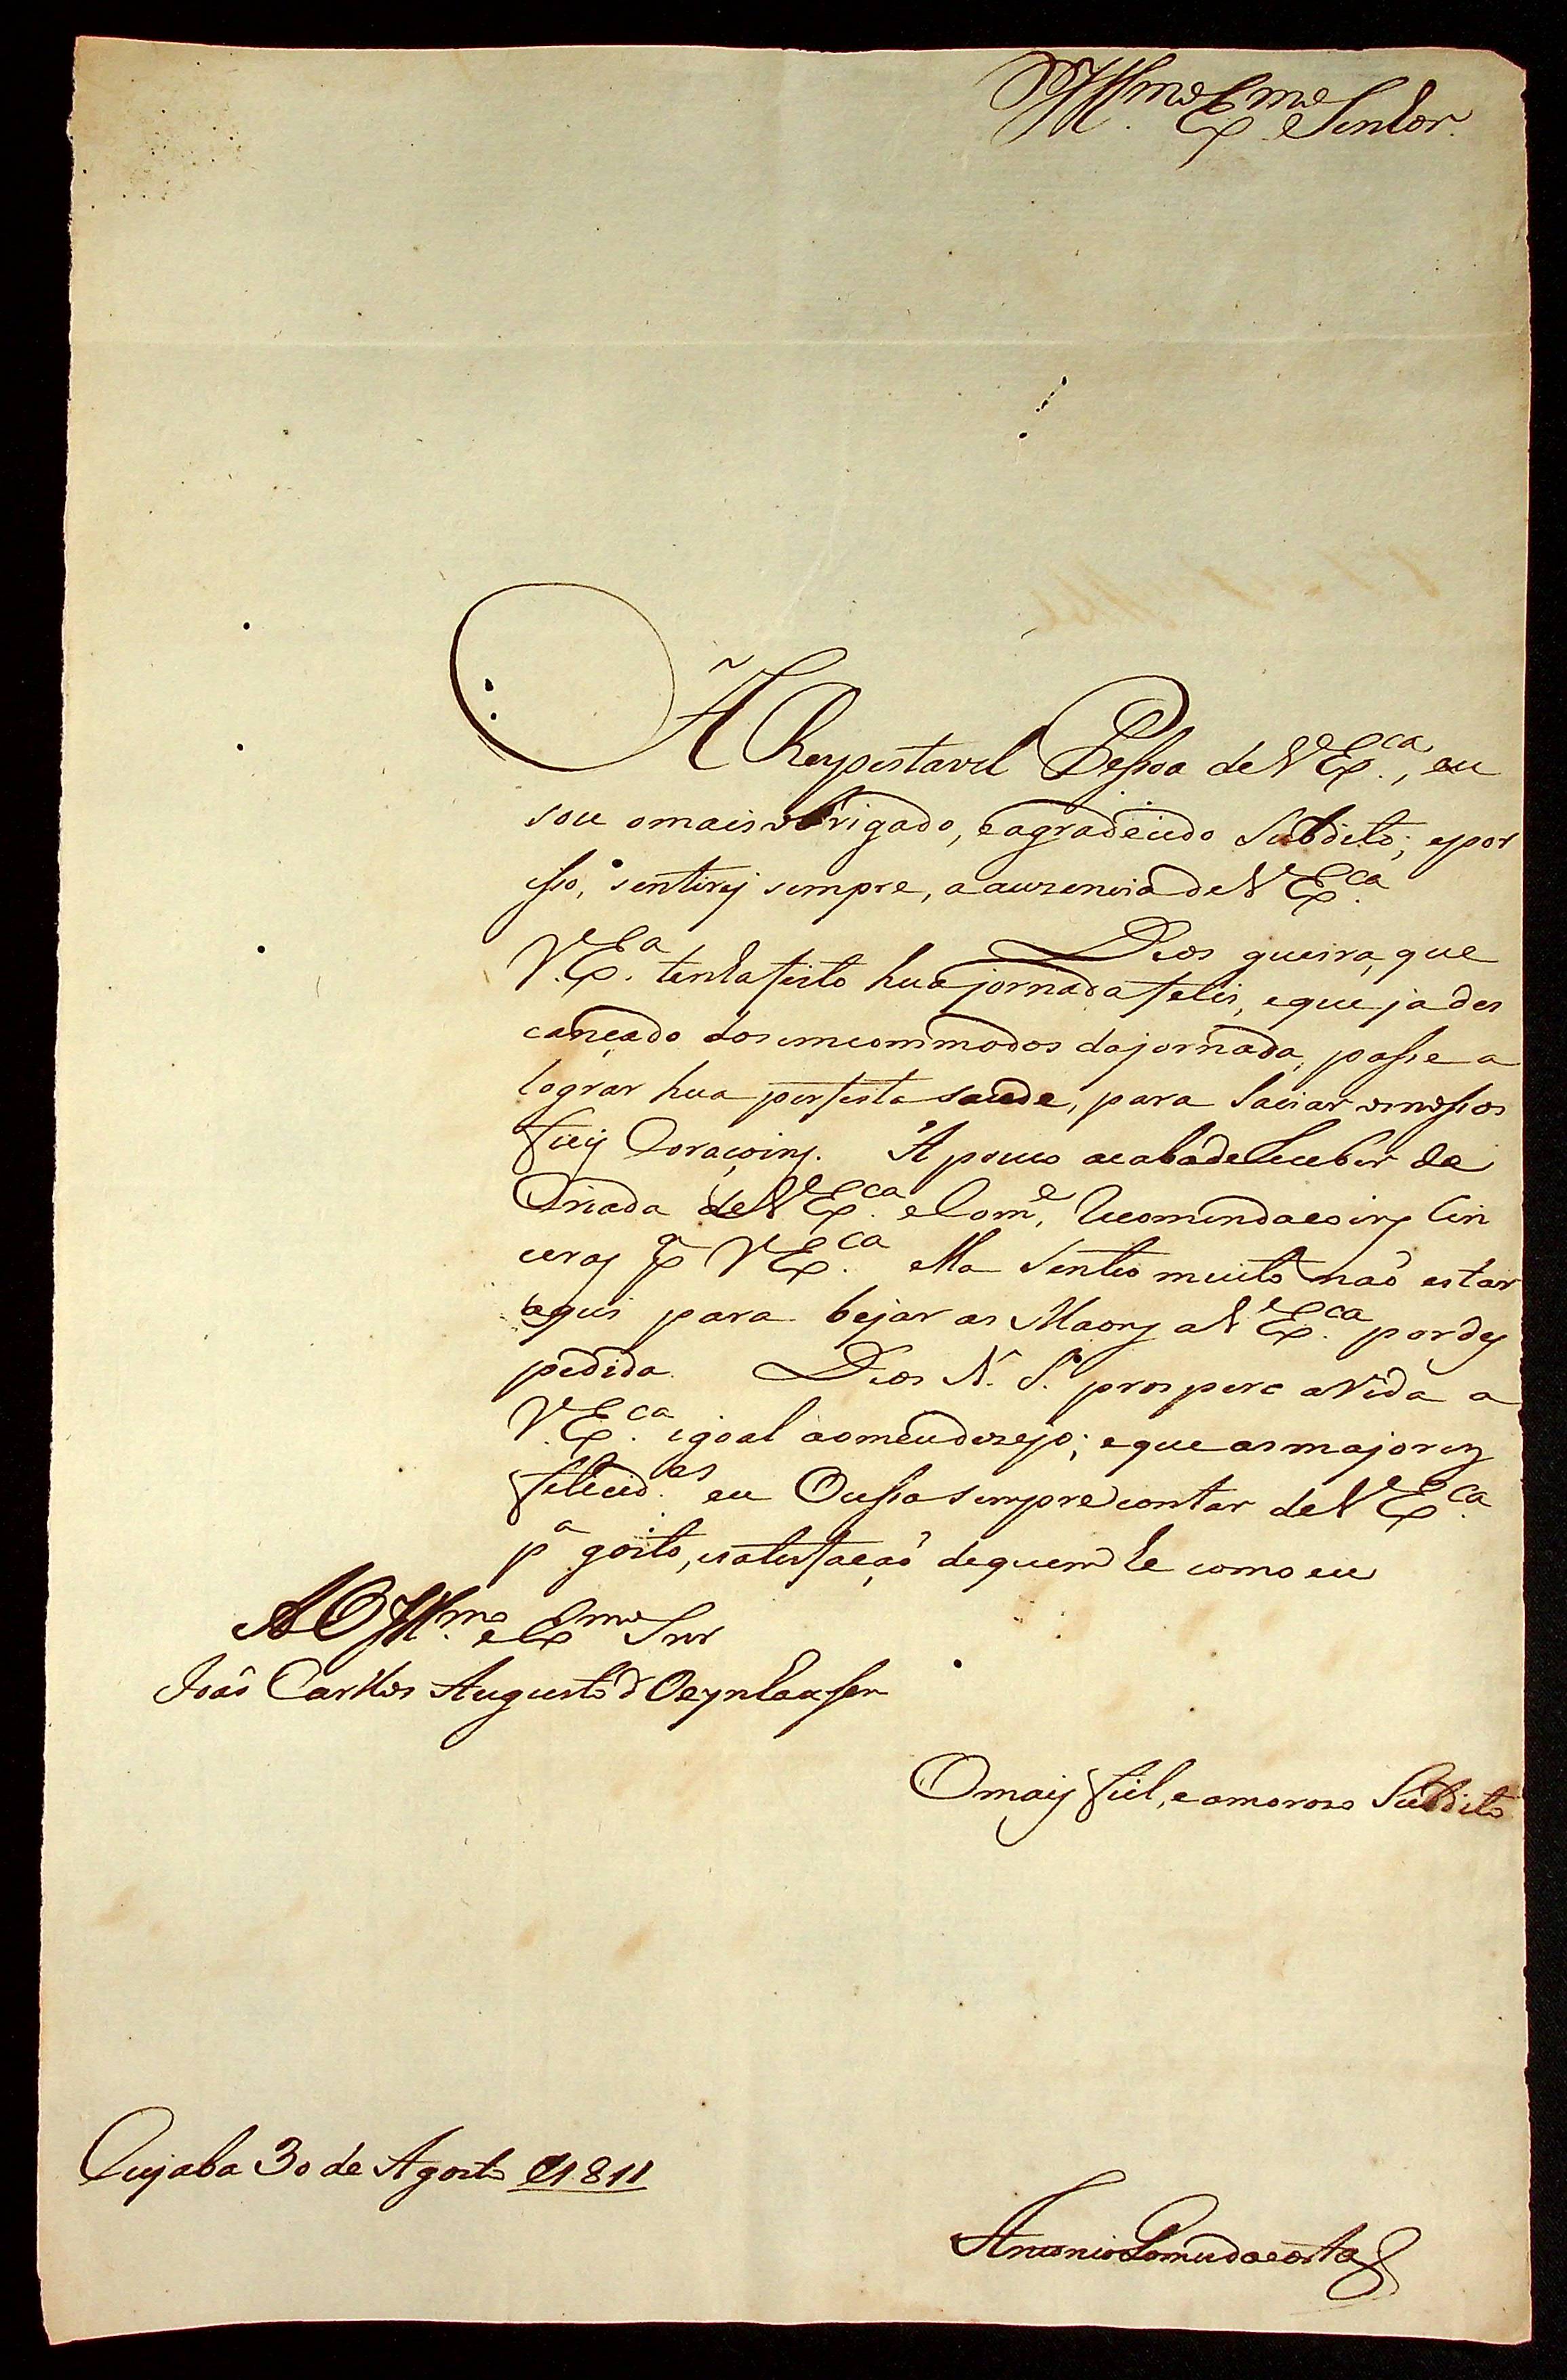 Ill.mo Ex.mo Senhor.
Á Reypestavel Pessoa de V Ex.ca, eu
sou o mais obrigado, e agradecido Subdito; e por
isso, sentirej sempre, a auzencia de V Ex.ca
Deos queira, que
V. Ex.a tenha feito hua jornada felis, e que ja des
cançado dos incommodos da jornada, passe a
lograr hua perfeita saude, para saciar os nossos
fieij Coraçoinz. A pouco acaba de receber da
Criada de V Ex.ca e Com.e, recomendaçoinz Sin
ceraz p.a V Ex.ca ella Sentio muito naõ estar
aqui para bejar as Maonz a V Ex.ca por dez
pedida. Deos N. S. prospere a Vida a
V. Ex.ca igoal ao meu dezejo; e que as majorez
felicid.es eu Oussa sempre contar de V Ex.ca
p.a gosto, e satisfaçaõ de quem he como eu
AO Ill.mo e Ex.mo Snr
Joaõ Carllos Augusto d' Oeynhaussen
O maij fiel, e amorozo Subdito
Cujaba 30 de Agosto de 1811
Antonio da Costa